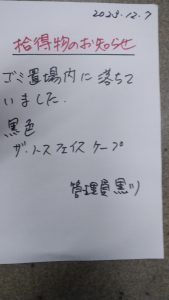 2023.12.7
拾得物のお知らせ
ゴミ置場内に落ちて
いました.
黒色
ザ・ノースフェイス ケープ
管理員